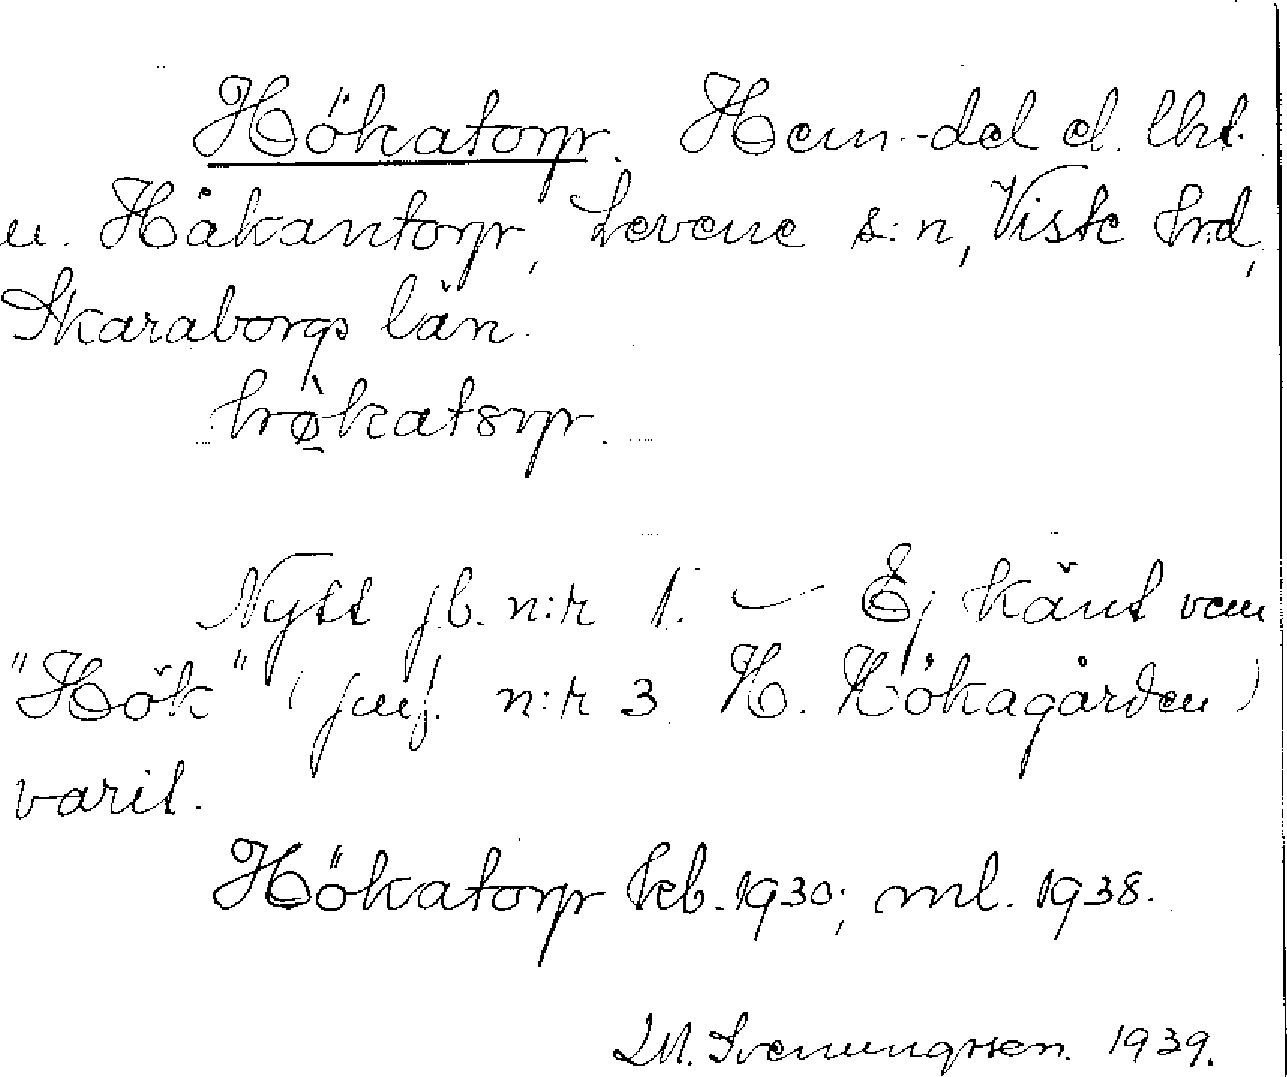 Hökatorp. Hem.-del el. lht.
u. Håkantorp, Levene s:n, Viste hrd,
Skaraborgs län.
hø̀katorp.
Nytt jb. n:r 1. – Ej känt vem
"Hök" (jmf. n:r 3 H. Hökagården)
varit.
Hökatorp kb. 1930; ml. 1938.
M. Svenungsson. 1939.